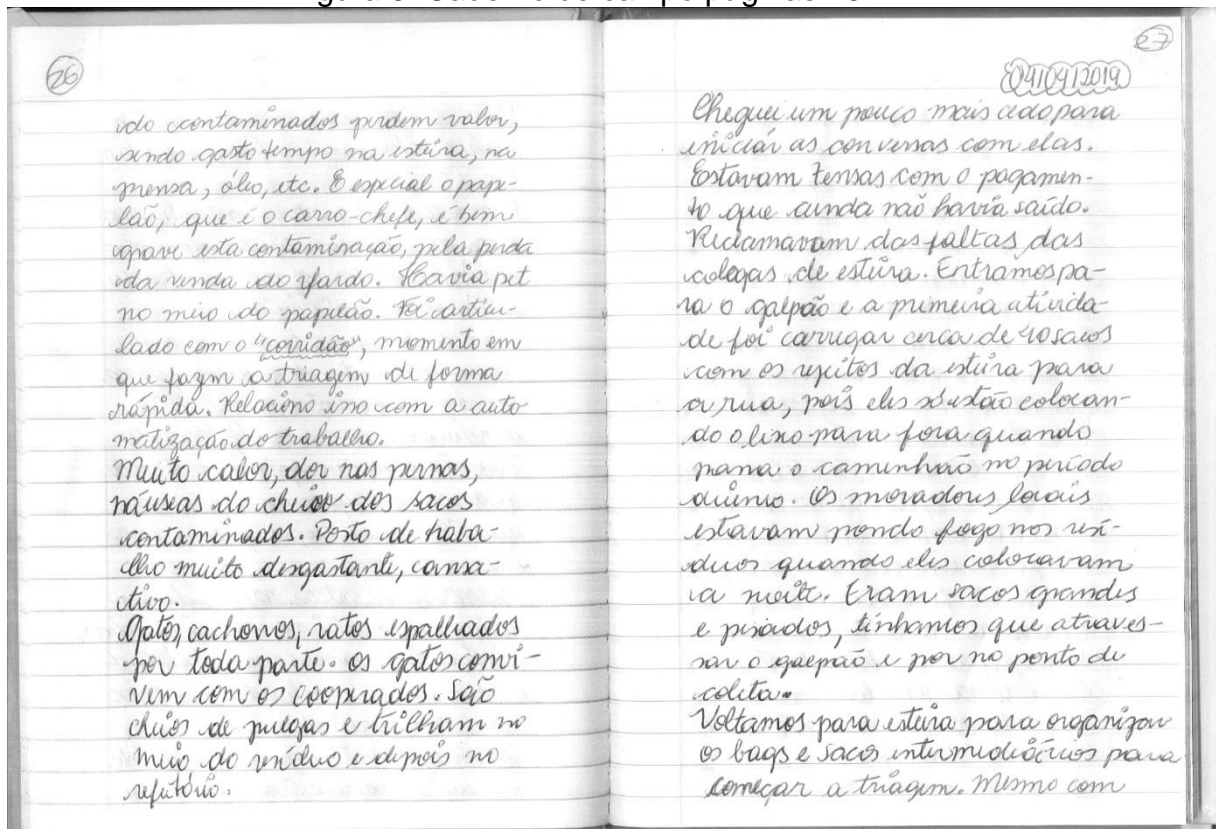 26
do contaminados perdem valor,
sendo gasto tempo na esteira, na
prensa, óleo, etc. E especial o pape-
lão, que é o carro-chefe, é bem
grave esta contaminação, pela perda
da venda do fardo. Havia pet
no meio do papelão. Foi articu-
lado com o "corridão", momento em
que fazem a triagem de forma
rápida. Relaciono isso com a auto
matização do trabalho.
Muito calor, dor nas pernas,
náuseas do cheiro dos sacos
contaminados. Posto de traba-
lho muito desgastante, cansa-
tivo.
Gatos, cachorros, ratos espalhados
por toda parte. os gatos convi-
vem com os cooperados. São
cheios de pulgas e trilham no
meio do resíduo e depois no
refeitório.
27
04/04/2019
Cheguei um pouco mais cedo para
iniciar as conversas com elas.
Estavam tensas com o pagamen-
to que ainda não havia saído.
Reclamavam das faltas das
colegas de esteira. Entramos pa-
ra o galpão e a primeira ativida-
de foi carregar cerca de 40 sacos
com os rejeitos da esteira para
a rua, pois eles só estão colocan-
do o lixo para fora quando
passa o caminhão no período
diurno. Os moradores locais
estavam pondo fogo nos resí-
duos quando eles colocavam
a noite. Eram sacos grandes
e pesados, tínhamos que atraves-
sar o galpão e por no ponto de
coleta.
Voltamos para esteira para organizar
os bags e sacos intermediários para
começar a triagem. Mesmo com